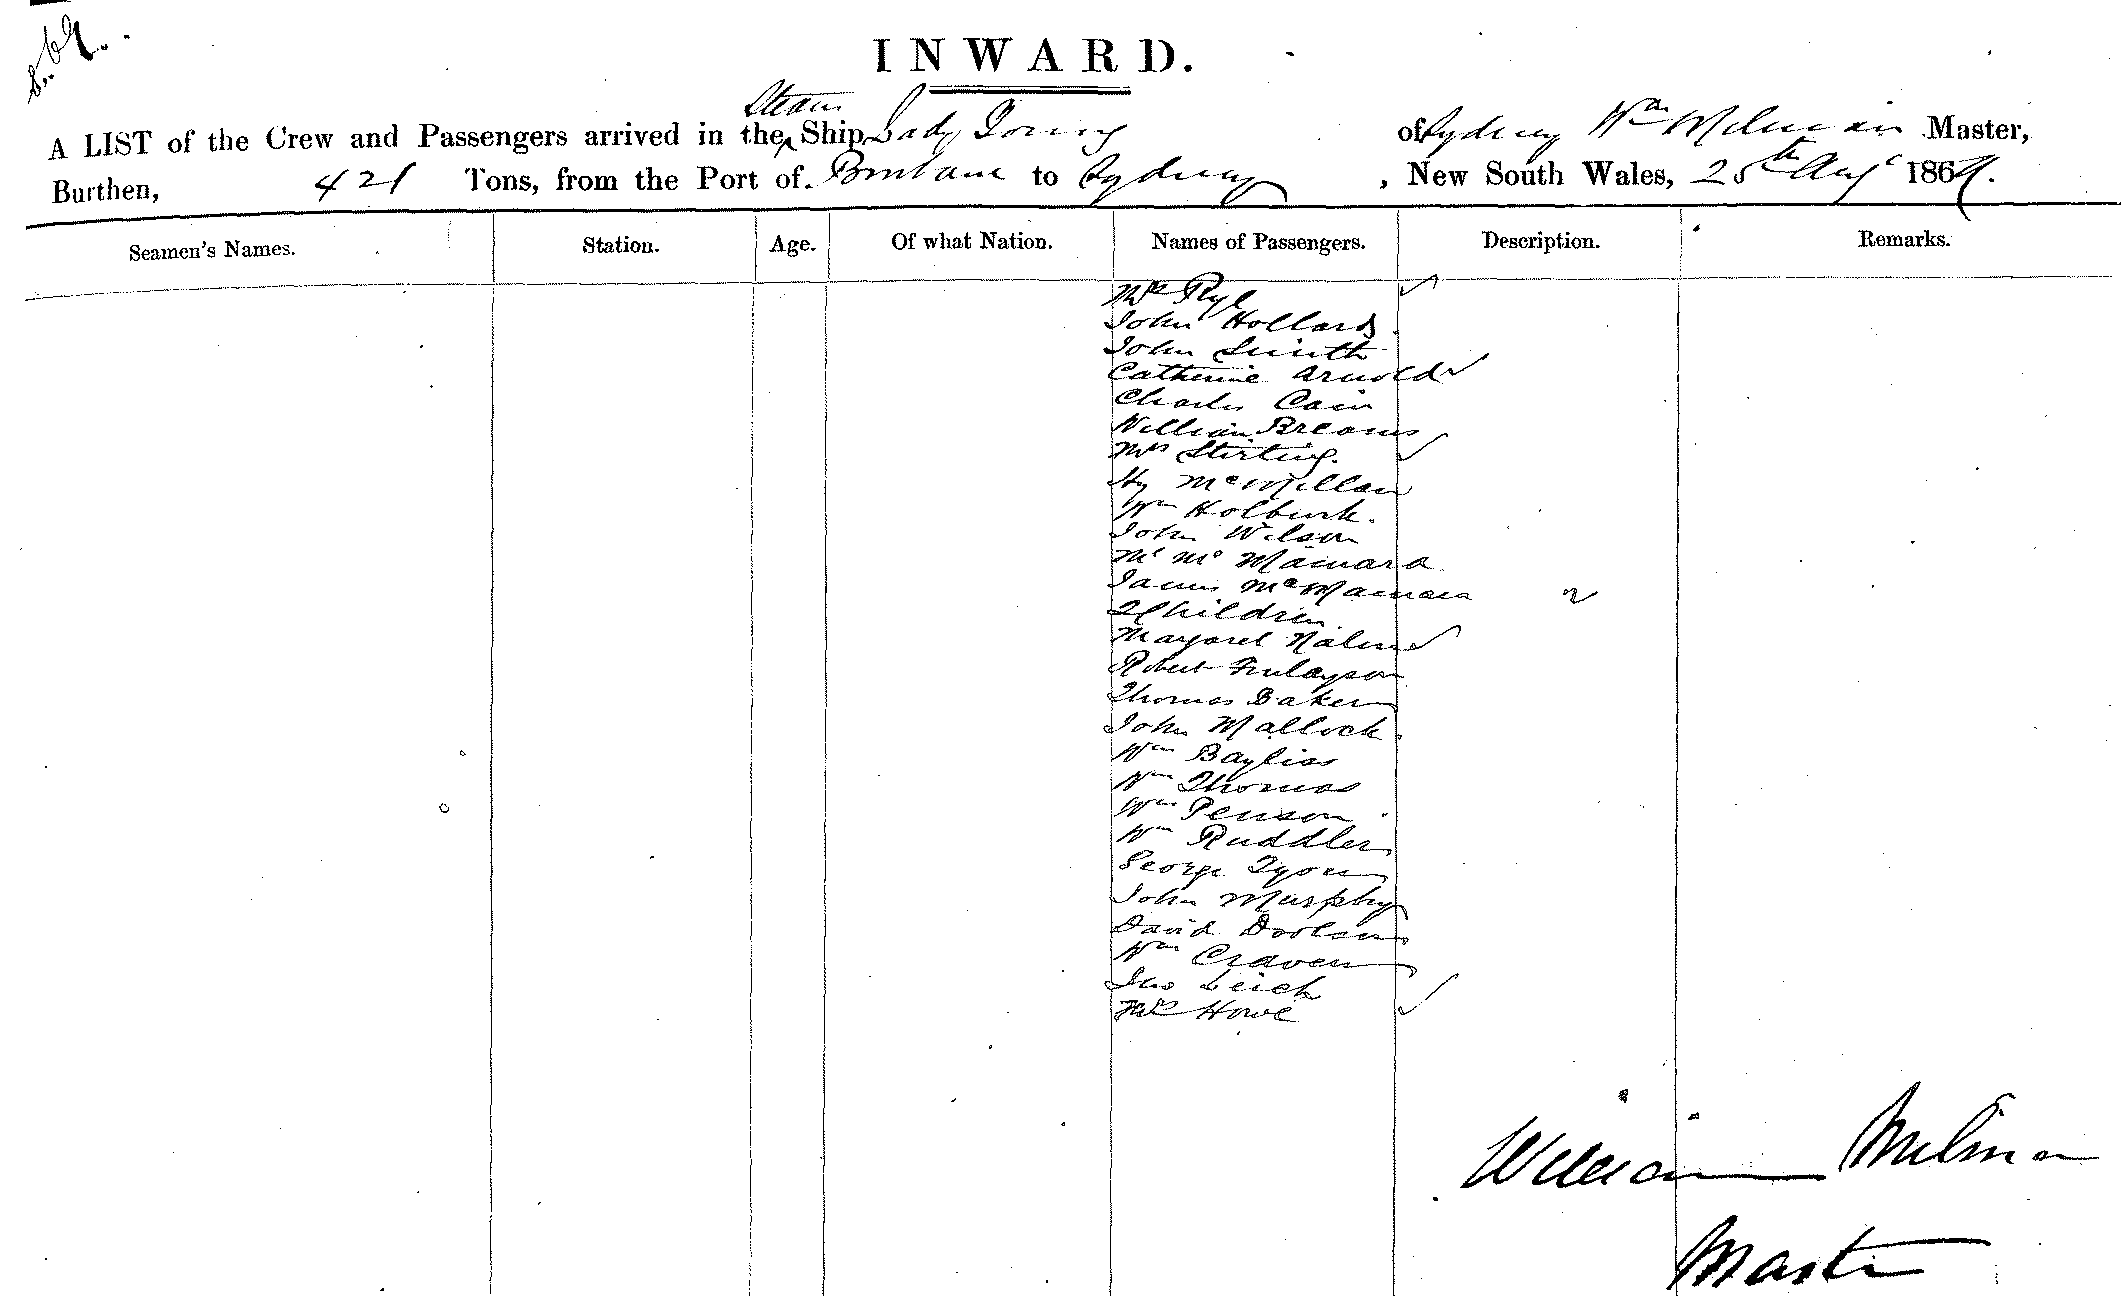 INWARD.
A LIST of the Crew and Passengers arrived in the Steam Ship Lady Young of Sydney Wm Milman Master,
Burthen, 421 Tons, from the Port of Brisbane to Sydney, New South Wales, 25th Augt 1869.
Seamen's Names. Station. Age. Of what Nation. Names of Passengers. Description. Remarks.
John Hollard
John Smith
Catherine Arnold
Charles Cain
William
Mrs Stirling.
Hy McMillan
Wm
John Wilson
James McNamara 2
2 Children
Margaret
Robert Finlayson
Thomas Baker
John Mallock
Wm Bayliss
Wm Thomas
Wm Penson
Wm Ruddler
George
John Murphy
David
Wm Craven
Leich
Howe
William Milman
Master